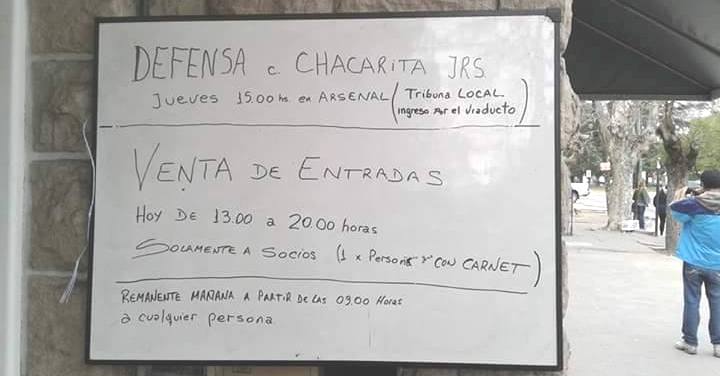 DEFENSA c. CHACARITA JRS
JUEVES 15.00 hs. en ARSENAL (Tribuna LOCAL. ingreso Por el Viaducto)
VENTA DE ENTRADAS
HOY DE 13.00 a 20.00 horas
SOLAMENTE A SOCIOS (1 x Persona y CON CARNET)
REMANENTE MAÑANA A PARTIR DE LAS 09.00 Horas
a cualquier persona